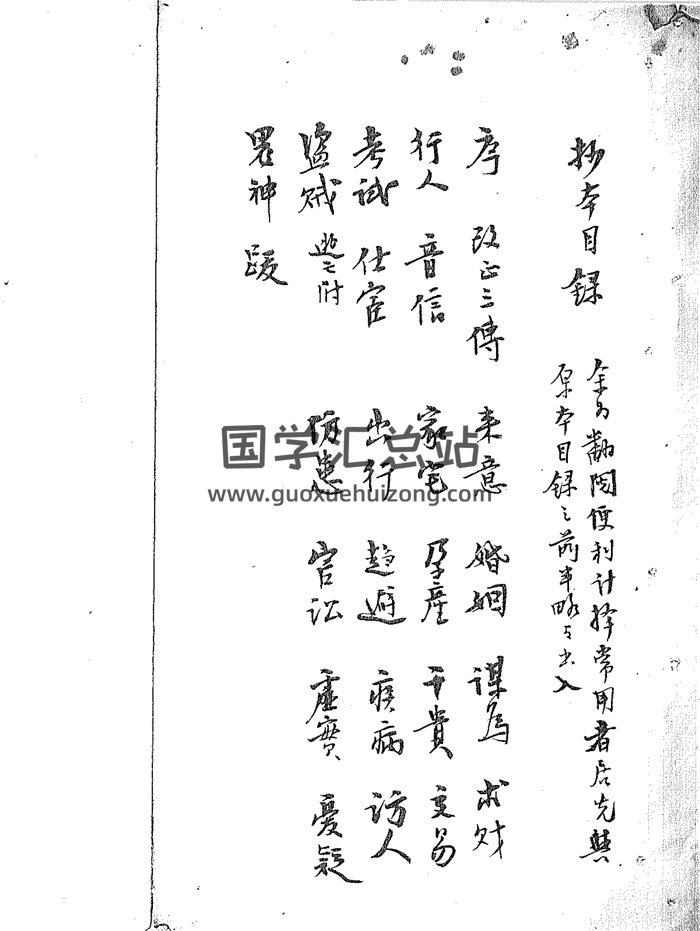 抄本目録
余為翻閱便利計擇常用者居先與
原本目録之前半略有出入
序 改正三傳 来意 婚姻 謀為 求财
行人 音信 家宅 孕產 干貴 交易
考試 仕宦 出行 趋避 疾病 访人
盜贼 逃亡附 防患 官讼 虛實 憂疑
畧神 跋
国学汇总站
www.guoxuehuizong.com